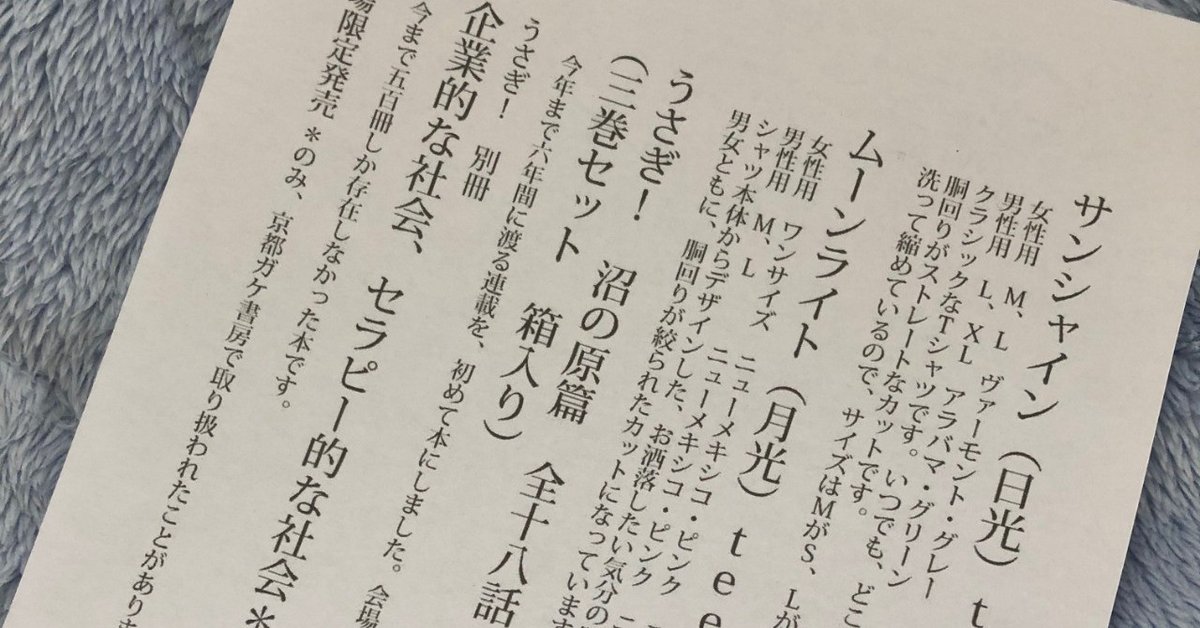 サンシャイン（日光）t
女性用　M、L　ヴァーモント・グレー
男性用　L、XL　アラバマ・グリーン
クラシックなTシャツです。いつでも、どこ
胴回りがストレートなカットです。
洗って縮めているので、サイズはMがS、Lが
ムーンライト（月光）tee
女性用　ワンサイズ　ニューメキシコ・ピンク
男性用　M、L　ニューメキシコ・ピンク　ニ
シャツ本体からデザインした、お洒落したい気分の
男女ともに、胴回りが絞られたカットになっています
うさぎ！　沼の原篇　全十八話
（三巻セット　箱入り）
今年まで六年間に渡る連載を、初めて本にしました。会場
うさぎ！　別冊
企業的な社会、セラピー的な社会＊
今まで五百冊しか存在しなかった本です。
場限定発売　＊のみ、京都ガケ書房で取り扱われたことがありま